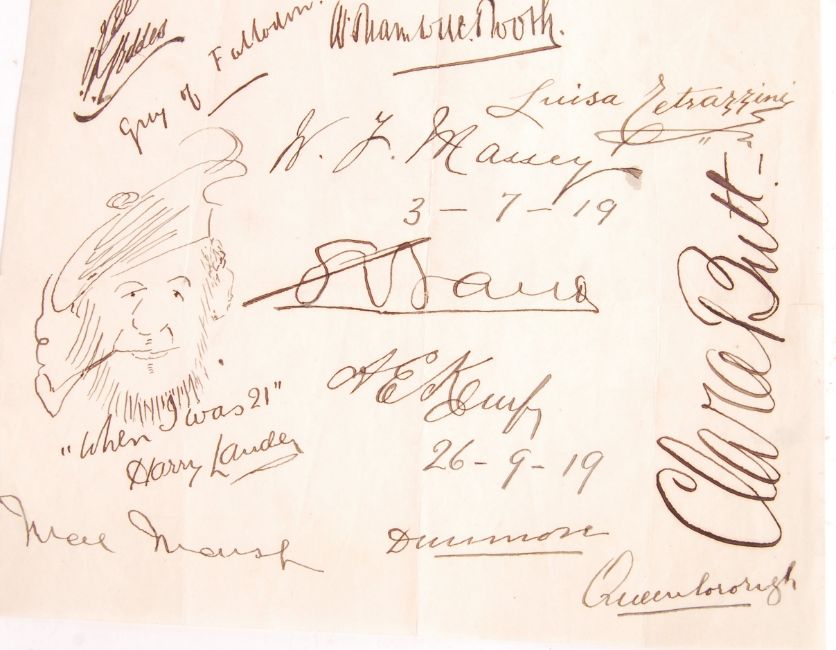 Grey of Fallodon.
W. Bramwell Booth.
Luisa Tetrazzini
W. F. Massey
3 - 7 - 19
Clara Butt -
Evans
A E Kemp
26 - 9 - 19
"When I was 21"
Harry Lauder
Mae Marsh
Dunmore
Queenborough